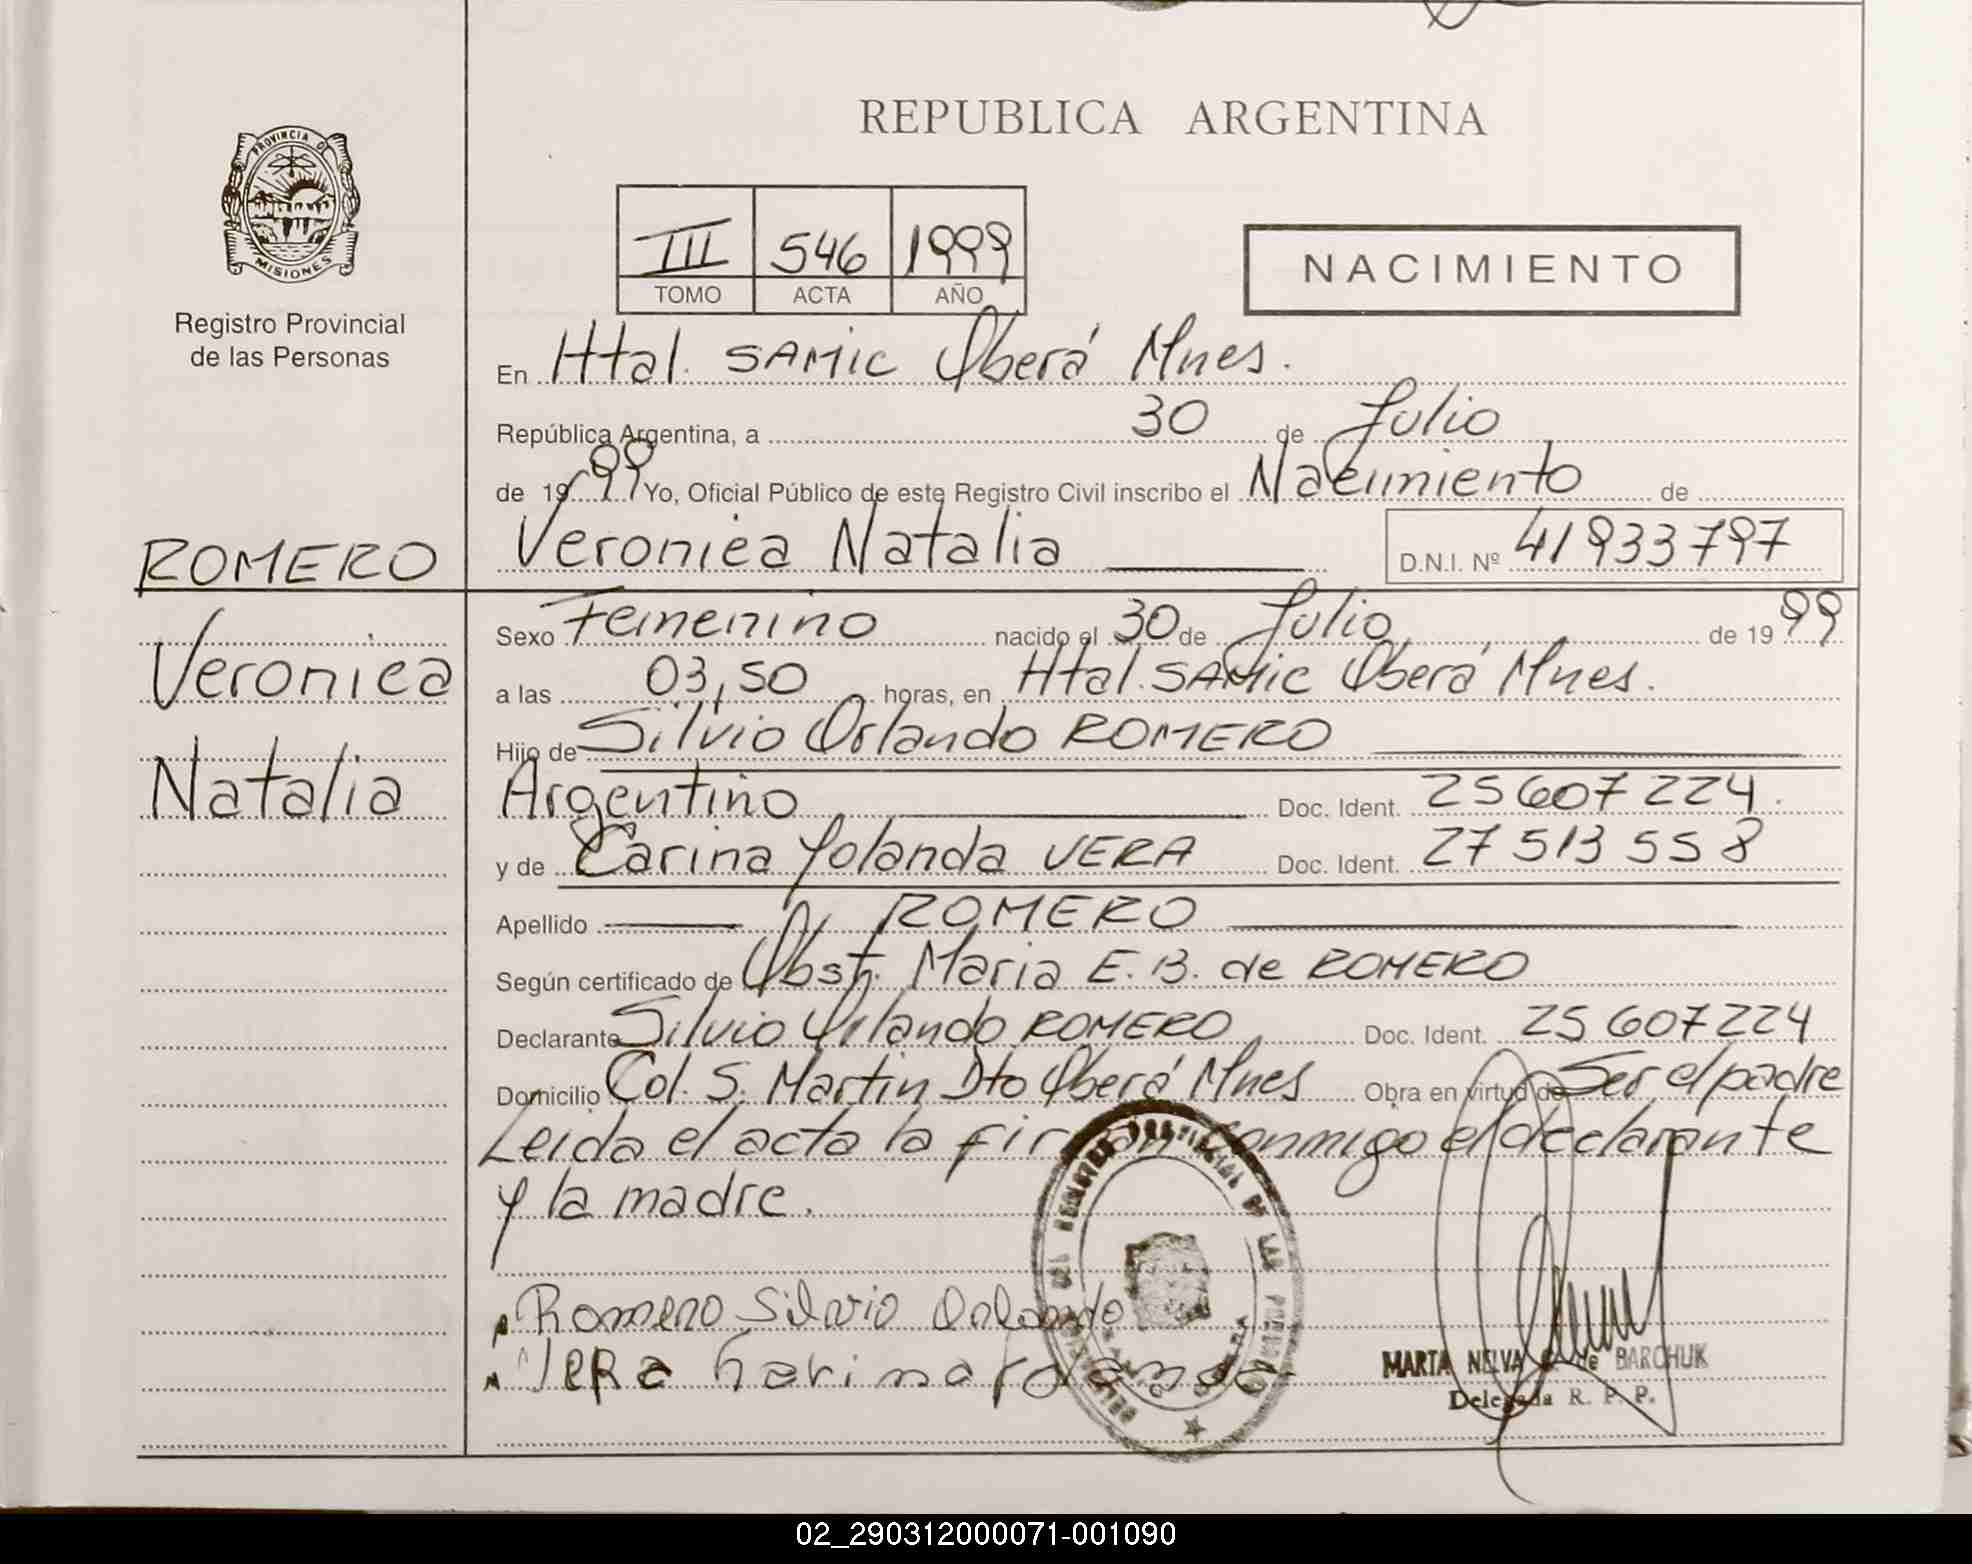 REPUBLICA ARGENTINA
PROVINCIA D
MISIONES
Registro Provincial
de las Personas
III 546 1999
TOMO ACTA AÑO
NACIMIENTO
En Htal. SAMIC Oberá Mnes.
República Argentina, a 30 de Julio
de 1999 Yo, Oficial Público de este Registro Civil inscribo el Nacimiento de
Veronica Natalia D.N.I. Nº 41933797
ROMERO
Veronica
Natalia
Sexo Femenino nacido el 30 de Julio de 1999
a las 03,50 horas, en Htal. SAMIC Oberá Mnes.
Hijo de Silvio Orlando ROMERO
Argentino Doc. Ident. 25607224.
y de Carina Yolanda VERA Doc. Ident. 27513558
Apellido ROMERO
Según certificado de Obst. Maria E. B. de ROMERO
Declarante Silvio Orlando ROMERO Doc. Ident. 25607224
Domicilio Col. S. Martin Dto Oberá Mnes Obra en virtud de Ser el padre
Leida el acta la firman conmigo el declarante
y la madre.
Romero Silvio Orlando
VeRa Karina Yolanda
MARTA NELVA de BARCHUK
Delegada R. P. P.
02_290312000071-001090